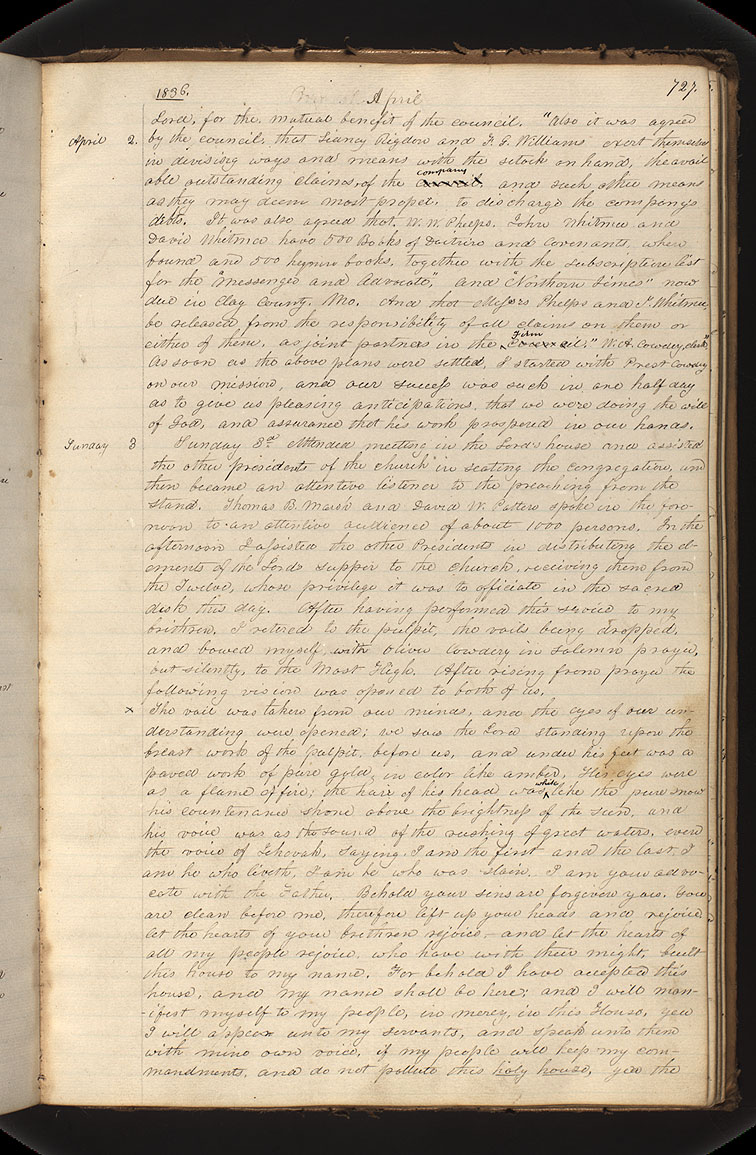 1836. April 727.
Lord, for the mutual benefit of the council. "Also it was agreed
April 2. by the council, that Sidney Rigdon and F. G. Williams exert themselves
in devising ways and means with the stock on hand, the avail
able outstanding claims of the company and such other means
as they may deem most proper, to discharge the company's
debts. It was also agreed that W. W. Phelps, John Whitmer and
David Whitmer have 500 Books of Doctrine and Covenants, when
bound and 500 hymn books, together with the subscription list
for the "Messenger and Advocate", and "Northern Times" now
due in Clay County, Mo. And that Messrs Phelps and J. Whitmer
be released from the responsibility of all claims on them or
either of them, as joint partners in the Firm." W. A. Cowdery, clerk"
As soon as the above plans were settled, I started with Prest Cowdery
on our mission, and our success was such in one half day
as to give us pleasing anticipations, that we were doing the will
of God, and assurance that his work prospered in our hands.
Sunday 3 Sunday 3d. Attended meeting in the Lord's house and assisted
the other presidents of the church in seating the congregation, and
then became an attentive listener to the preaching from the
stand. Thomas B. Marsh and David W. Patten spoke in the fore-
noon to an attentive audience of about 1000 persons. In the
afternoon I assisted the other Presidents in distributing the el-
ements of the Lords supper to the church, receiving them from
the Twelve, whose privilege it was to officiate in the sacred
desk this day. After having performed this service to my
brethren, I retired to the pulpit, the vails being dropped,
and bowed myself, with Oliver Cowdery in solemn prayer,
but silently, to the Most High. After rising from prayer the
following vision was opened to both of us,
x The vail was taken from our minds, and the eyes of our un-
derstanding were opened; we saw the Lord standing upon the
breast work of the pulpit, before us, and under his feet was a
paved work of pure gold, in color like amber. His eyes were
as a flame of fire; the hair of his head was white like the pure snow
his countenance shone above the brightness of the sun, and
his voice was as the sound of the rushing of great waters, even
the voice of Jehovah, saying, I am the first and the last, I
am he who liveth, I am he who was slain, I am your advo-
cate with the Father. Behold your sins are forgiven you. You
are clean before me, therefore lift up your heads and rejoice
let the hearts of your brethren rejoice - and let the hearts of
all my people rejoice, who have with their might, built
this house to my name. For behold I have accepted this
house, and my name shall be here; and I will man-
ifest myself to my people, in mercy, in this House, yea
I will appear unto my servants, and speak unto them
with mine own voice, if my people will keep my com-
mandments, and do not pollute this holy house, yea the